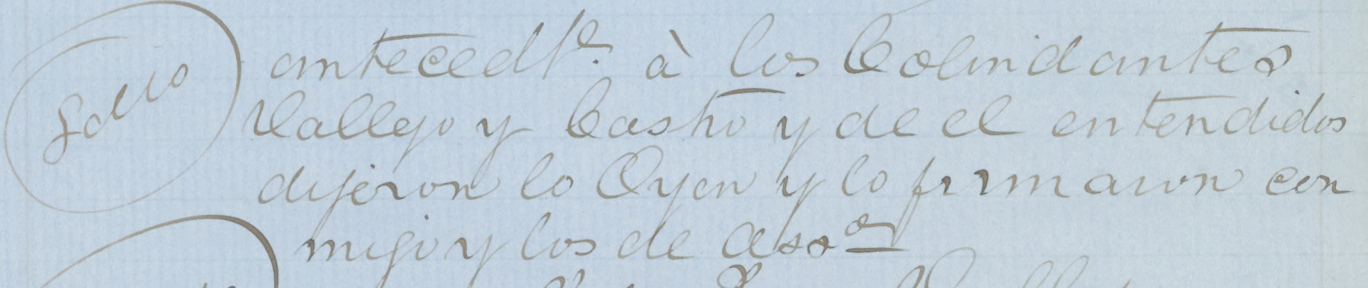 Sello
antecedte. à los Colindantes
Vallejo y Castro y de el entendidos
dijeron lo Oyen y lo firmaron con
migo y los de Assa